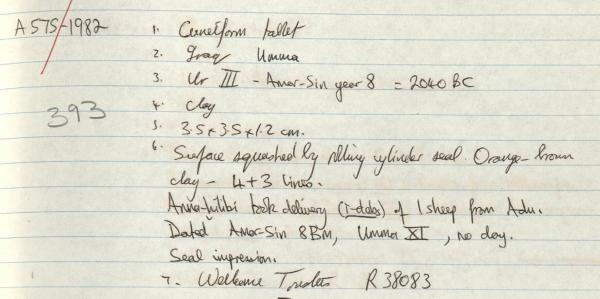 A575-1982
1. Cuneiform tablet
2. Iraq Umma
3. Ur III - Amar-Sin year 8 = 2040 BC
393
4. clay
5. 3.5 x 3.5 x 1.2 cm.
6. Surface squashed by rolling cylinder seal. Orange-brown
clay - 4 + 3 lines.
took delivery of 1 sheep from Adu.
Dated Amar-Sin 8 Bm, Umma XI, no day.
Seal impression.
7. Wellcome Trustees R 38083